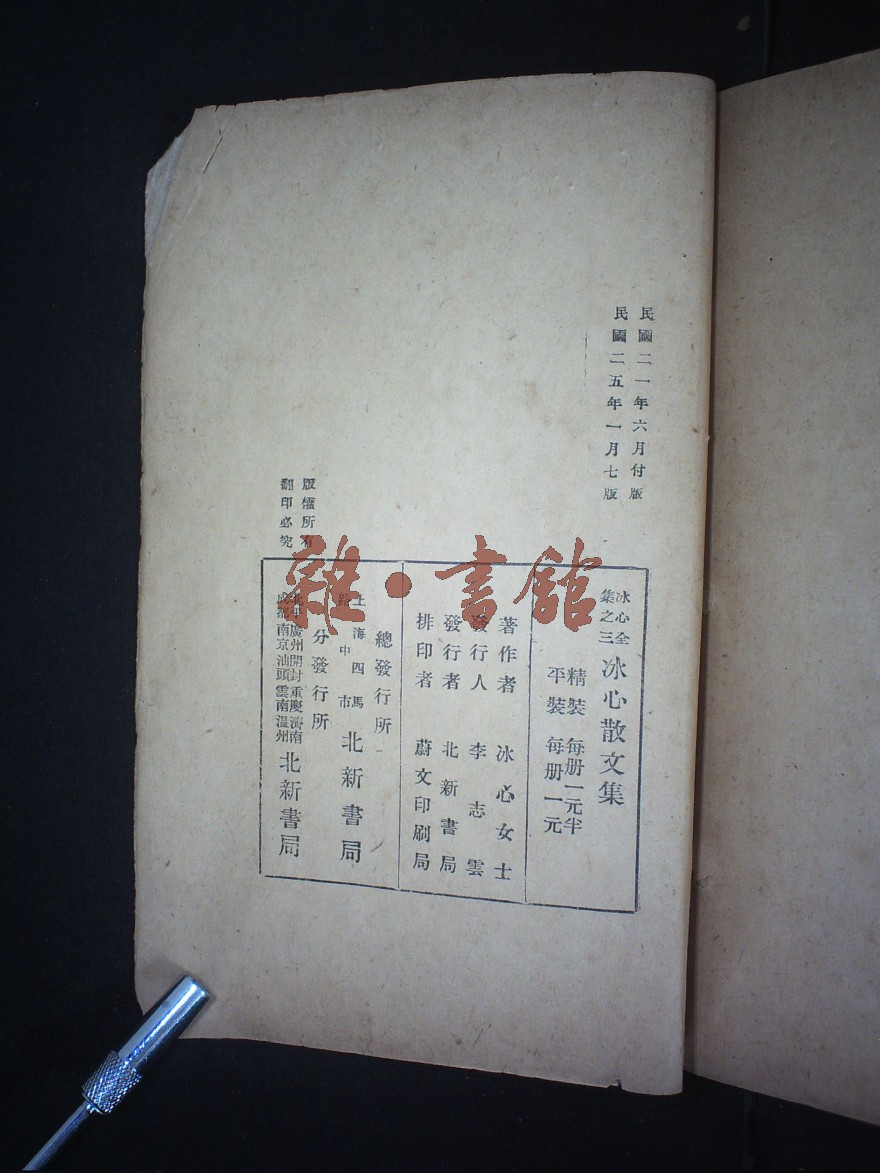 民國二一年六月付版
民國二五年一月七版
版權所有
翻印必究
冰心全
集之三
冰心散文集
精裝 每册一元半
平裝 每册一元
著作者 冰心女士
發行人 李志雲
發行者 北新書局
排印者 蔚文印刷局
總發行所
上海四馬
路中市
北新書局
分發行所
北平廣州開封重慶濟南
成都南京汕頭雲南溫州
北新書局
雜·書館